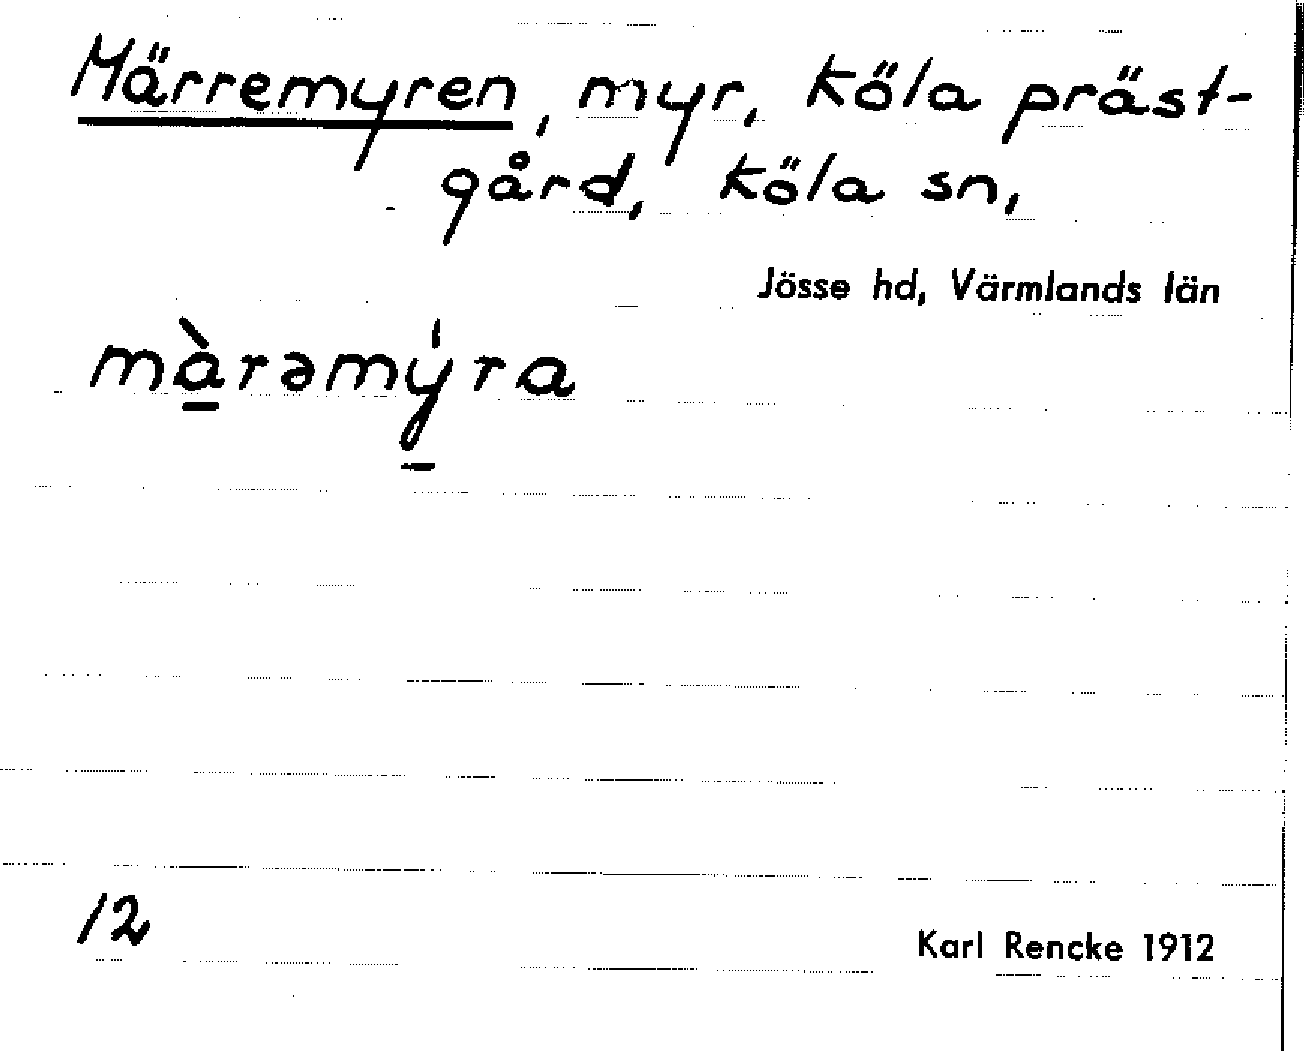 Märremyren, myr, Köla präst-
gård, Köla sn,
Jösse hd, Värmlands län
màrəmýra
12
Karl Rencke 1912